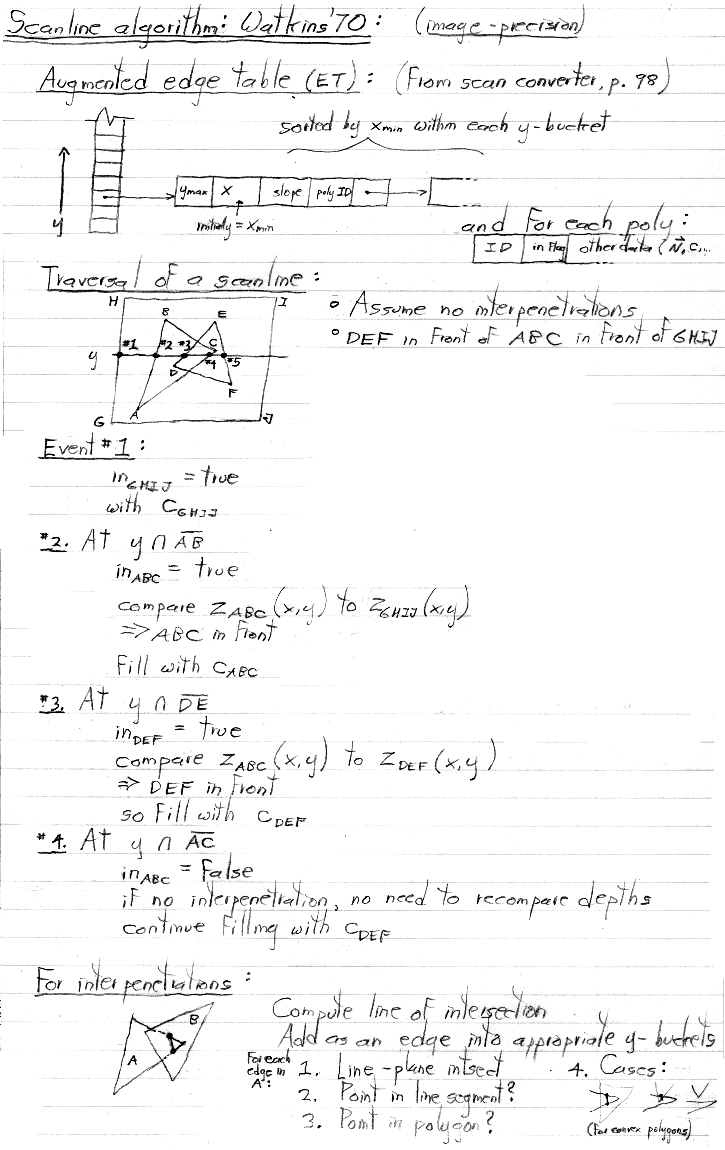 Scanline algorithm: Watkins '70: (image-precision)
Augmented edge table (ET): (From scan converter, p. 98)
sorted by xmin within each y-bucket
ymax X slope poly ID
y
initially = xmin
and For each poly:
ID in flag other data (N, C, ...
Traversal of a scanline:
H I
B E
#1 #2 #3 C #4 #5
y
D
F
G A J
° Assume no interpenetrations
° DEF in Front of ABC in Front of GHIJ
Event #1:
inGHIJ = true
with CGHIJ
#2. At y ∩ AB
inABC = true
compare ZABC(x,y) to ZGHIJ(x,y)
=> ABC in Front
Fill with CABC
#3. At y ∩ DE
inDEF = true
compare ZABC(x,y) to ZDEF(x,y)
=> DEF in Front
so Fill with CDEF
#4. At y ∩ AC
inABC = False
if no interpenetration, no need to recompare depths
continue Filling with CDEF
For interpenetrations:
A B
Compute line of intersection
Add as an edge into appropriate y-buckets
For each edge in A:
1. Line-plane intsect
2. Point in line segment?
3. Point in polygon?
4. Cases:
(For convex polygons)